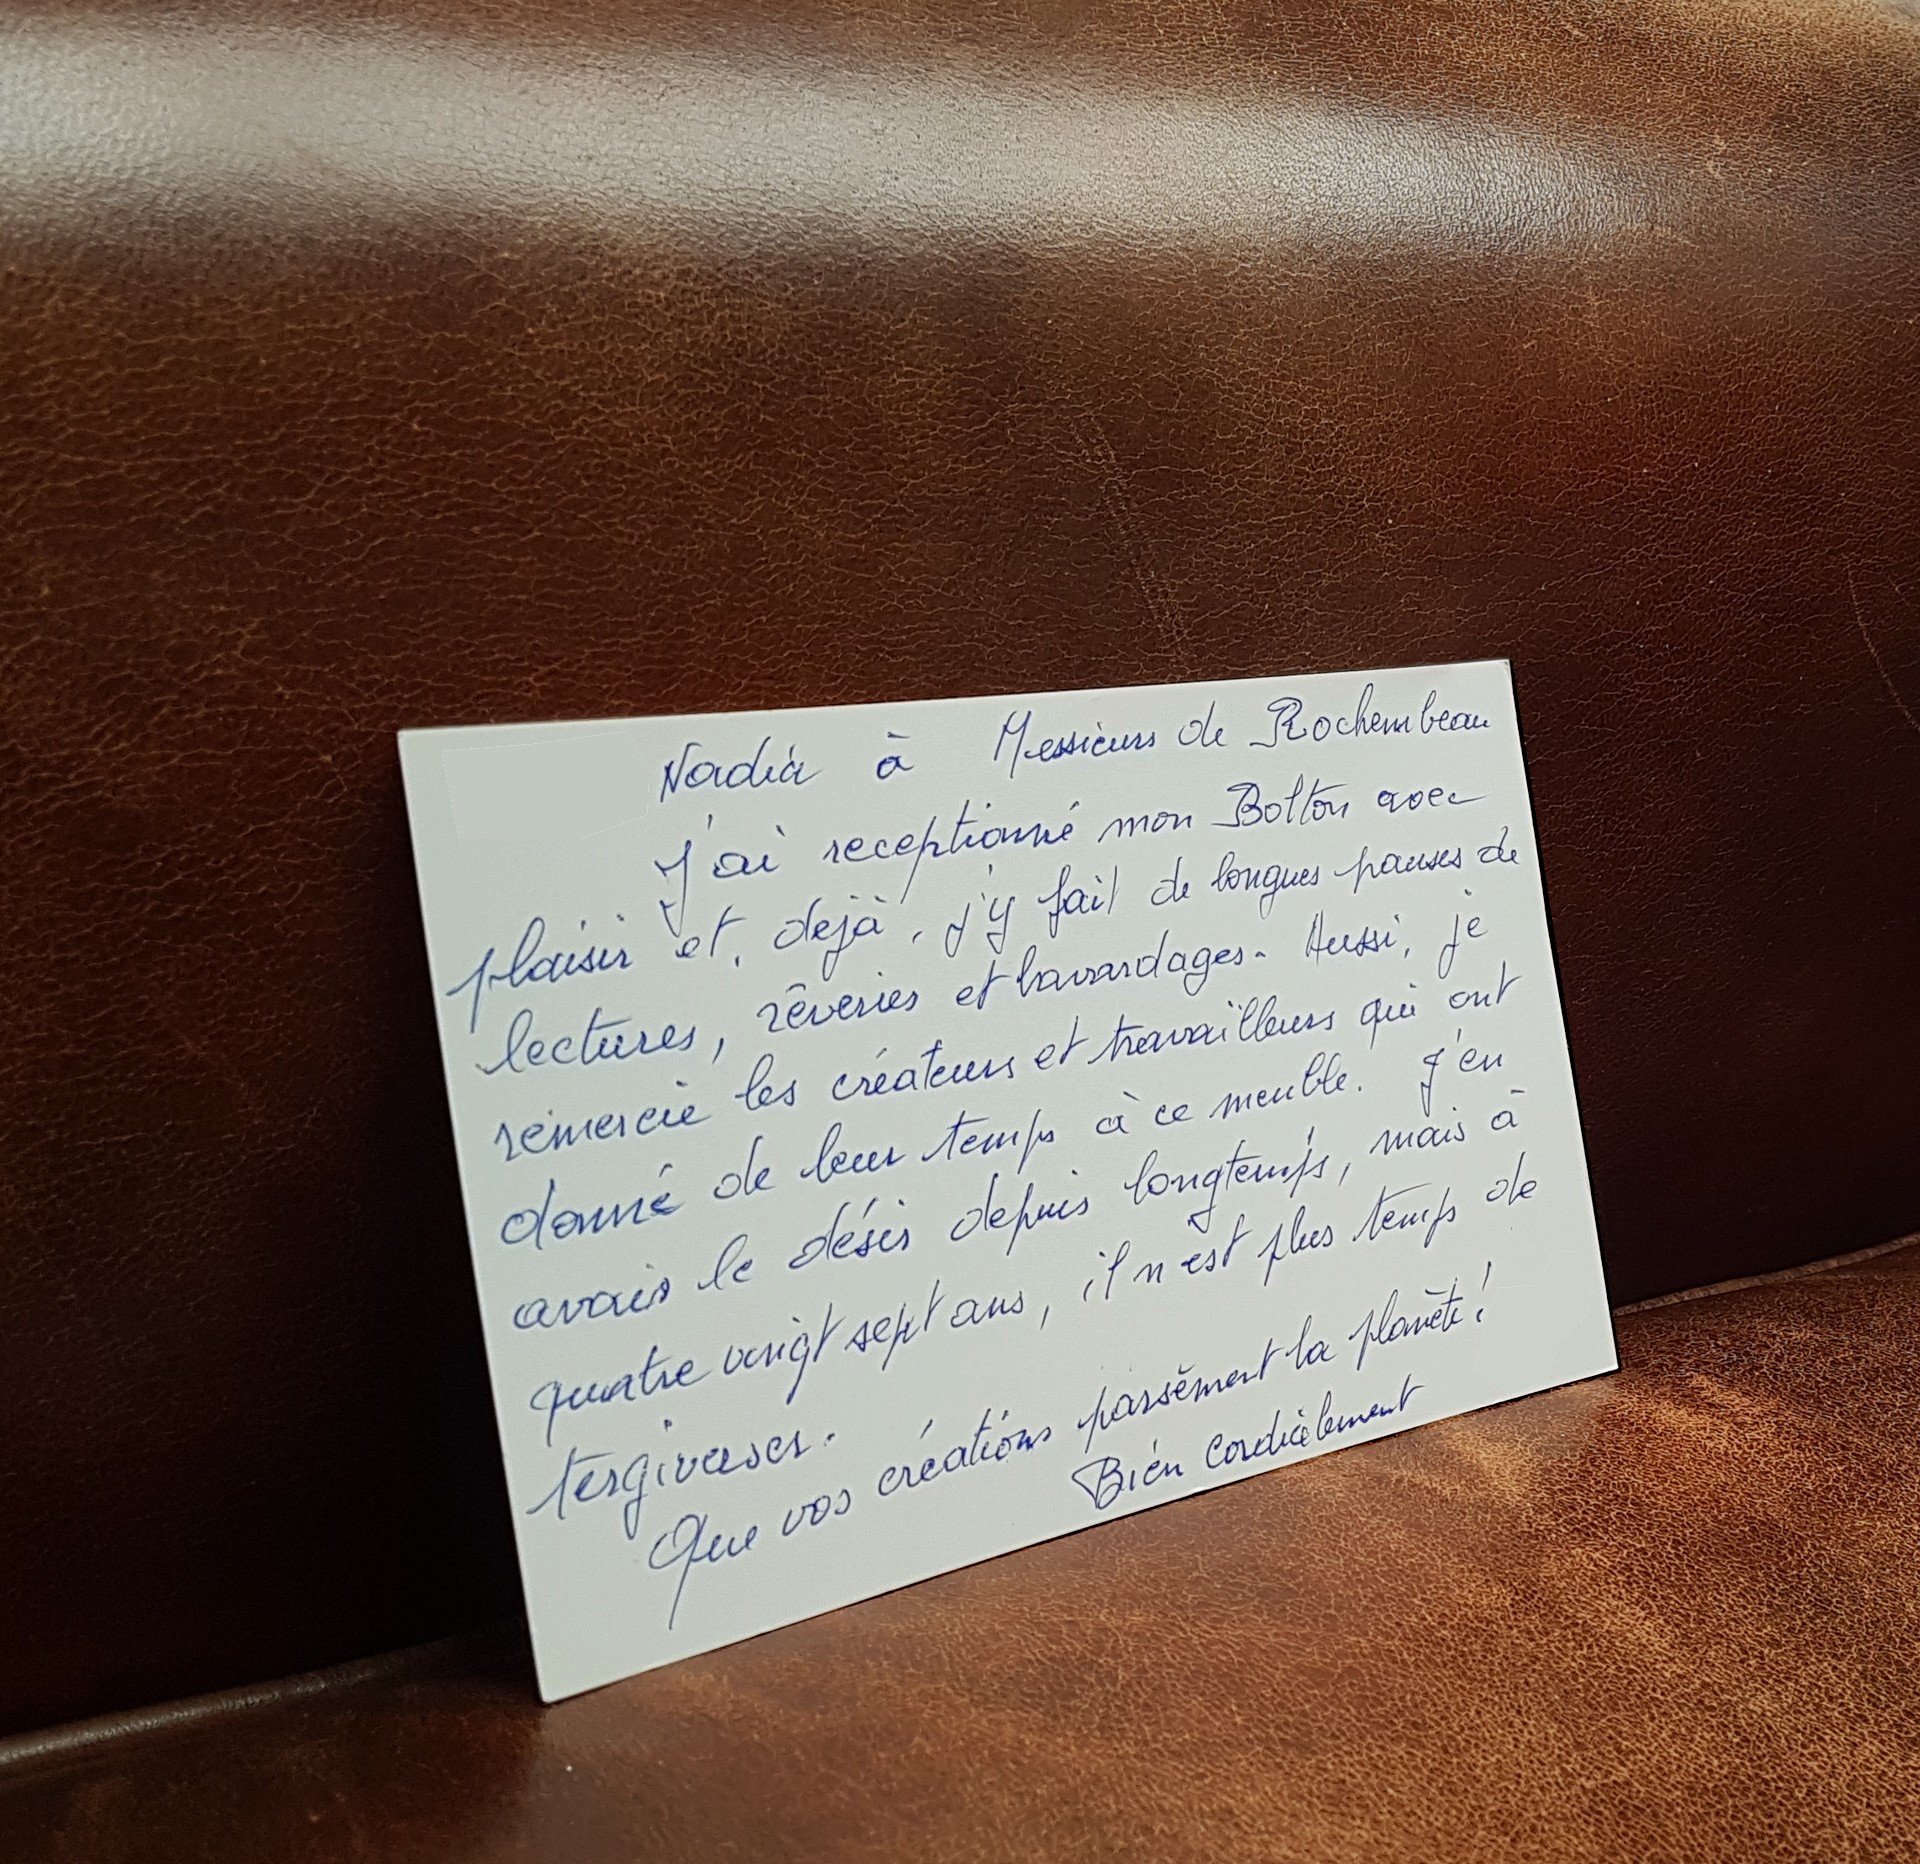 Nadia à Messieurs de Rochembeau
J'ai receptionné mon Bolton avec
plaisir et, dejà, j'y fait de longues pauses de
lectures, rêveries et bavardages. Aussi, je
remercie les créateurs et travailleurs qui ont
donné de leur temps à ce meuble. J'en
avais le désir depuis longtemps, mais à
quatre vingt sept ans, il n'est plus temps de
tergiverser.
Que vos créations parsèment la planète!
Bien cordialement